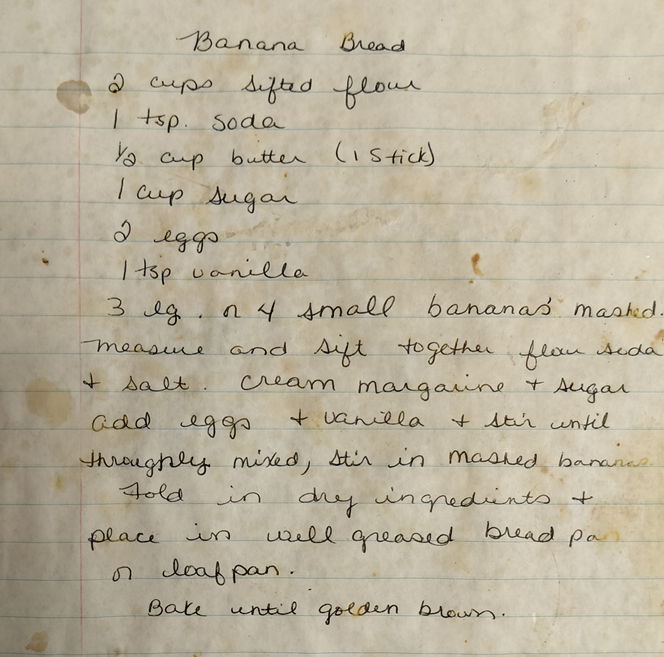 Banana Bread
2 cups sifted flour
1 tsp. soda
1/2 cup butter (1 stick)
1 cup sugar
2 eggs
1 tsp vanilla
3 lg. or 4 small bananas mashed.
measure and sift together flour soda
+ salt. cream margarine + sugar
add eggs + vanilla + stir until
throughly mixed, stir in mashed bananas
Fold in dry ingredients +
place in well greased bread pan
or loaf pan.
Bake until golden brown.